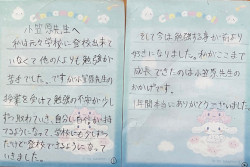 小笠原先生へ
私は元々学校に登校出来て
いなくて他の人よりも勉強が
苦手でした。ですが小笠原先生の
授業を受けて勉強の不安が少し
ずつ取れていき、自分に自信が持
てるようになって、学校にも少しず
つだけど登校できるようになって
いきました。
そして今は勉強する事が前より
好きになりました。私がここまで
成長できたのは小笠原先生の
おかげです。
1年間本当にありがとうございました。